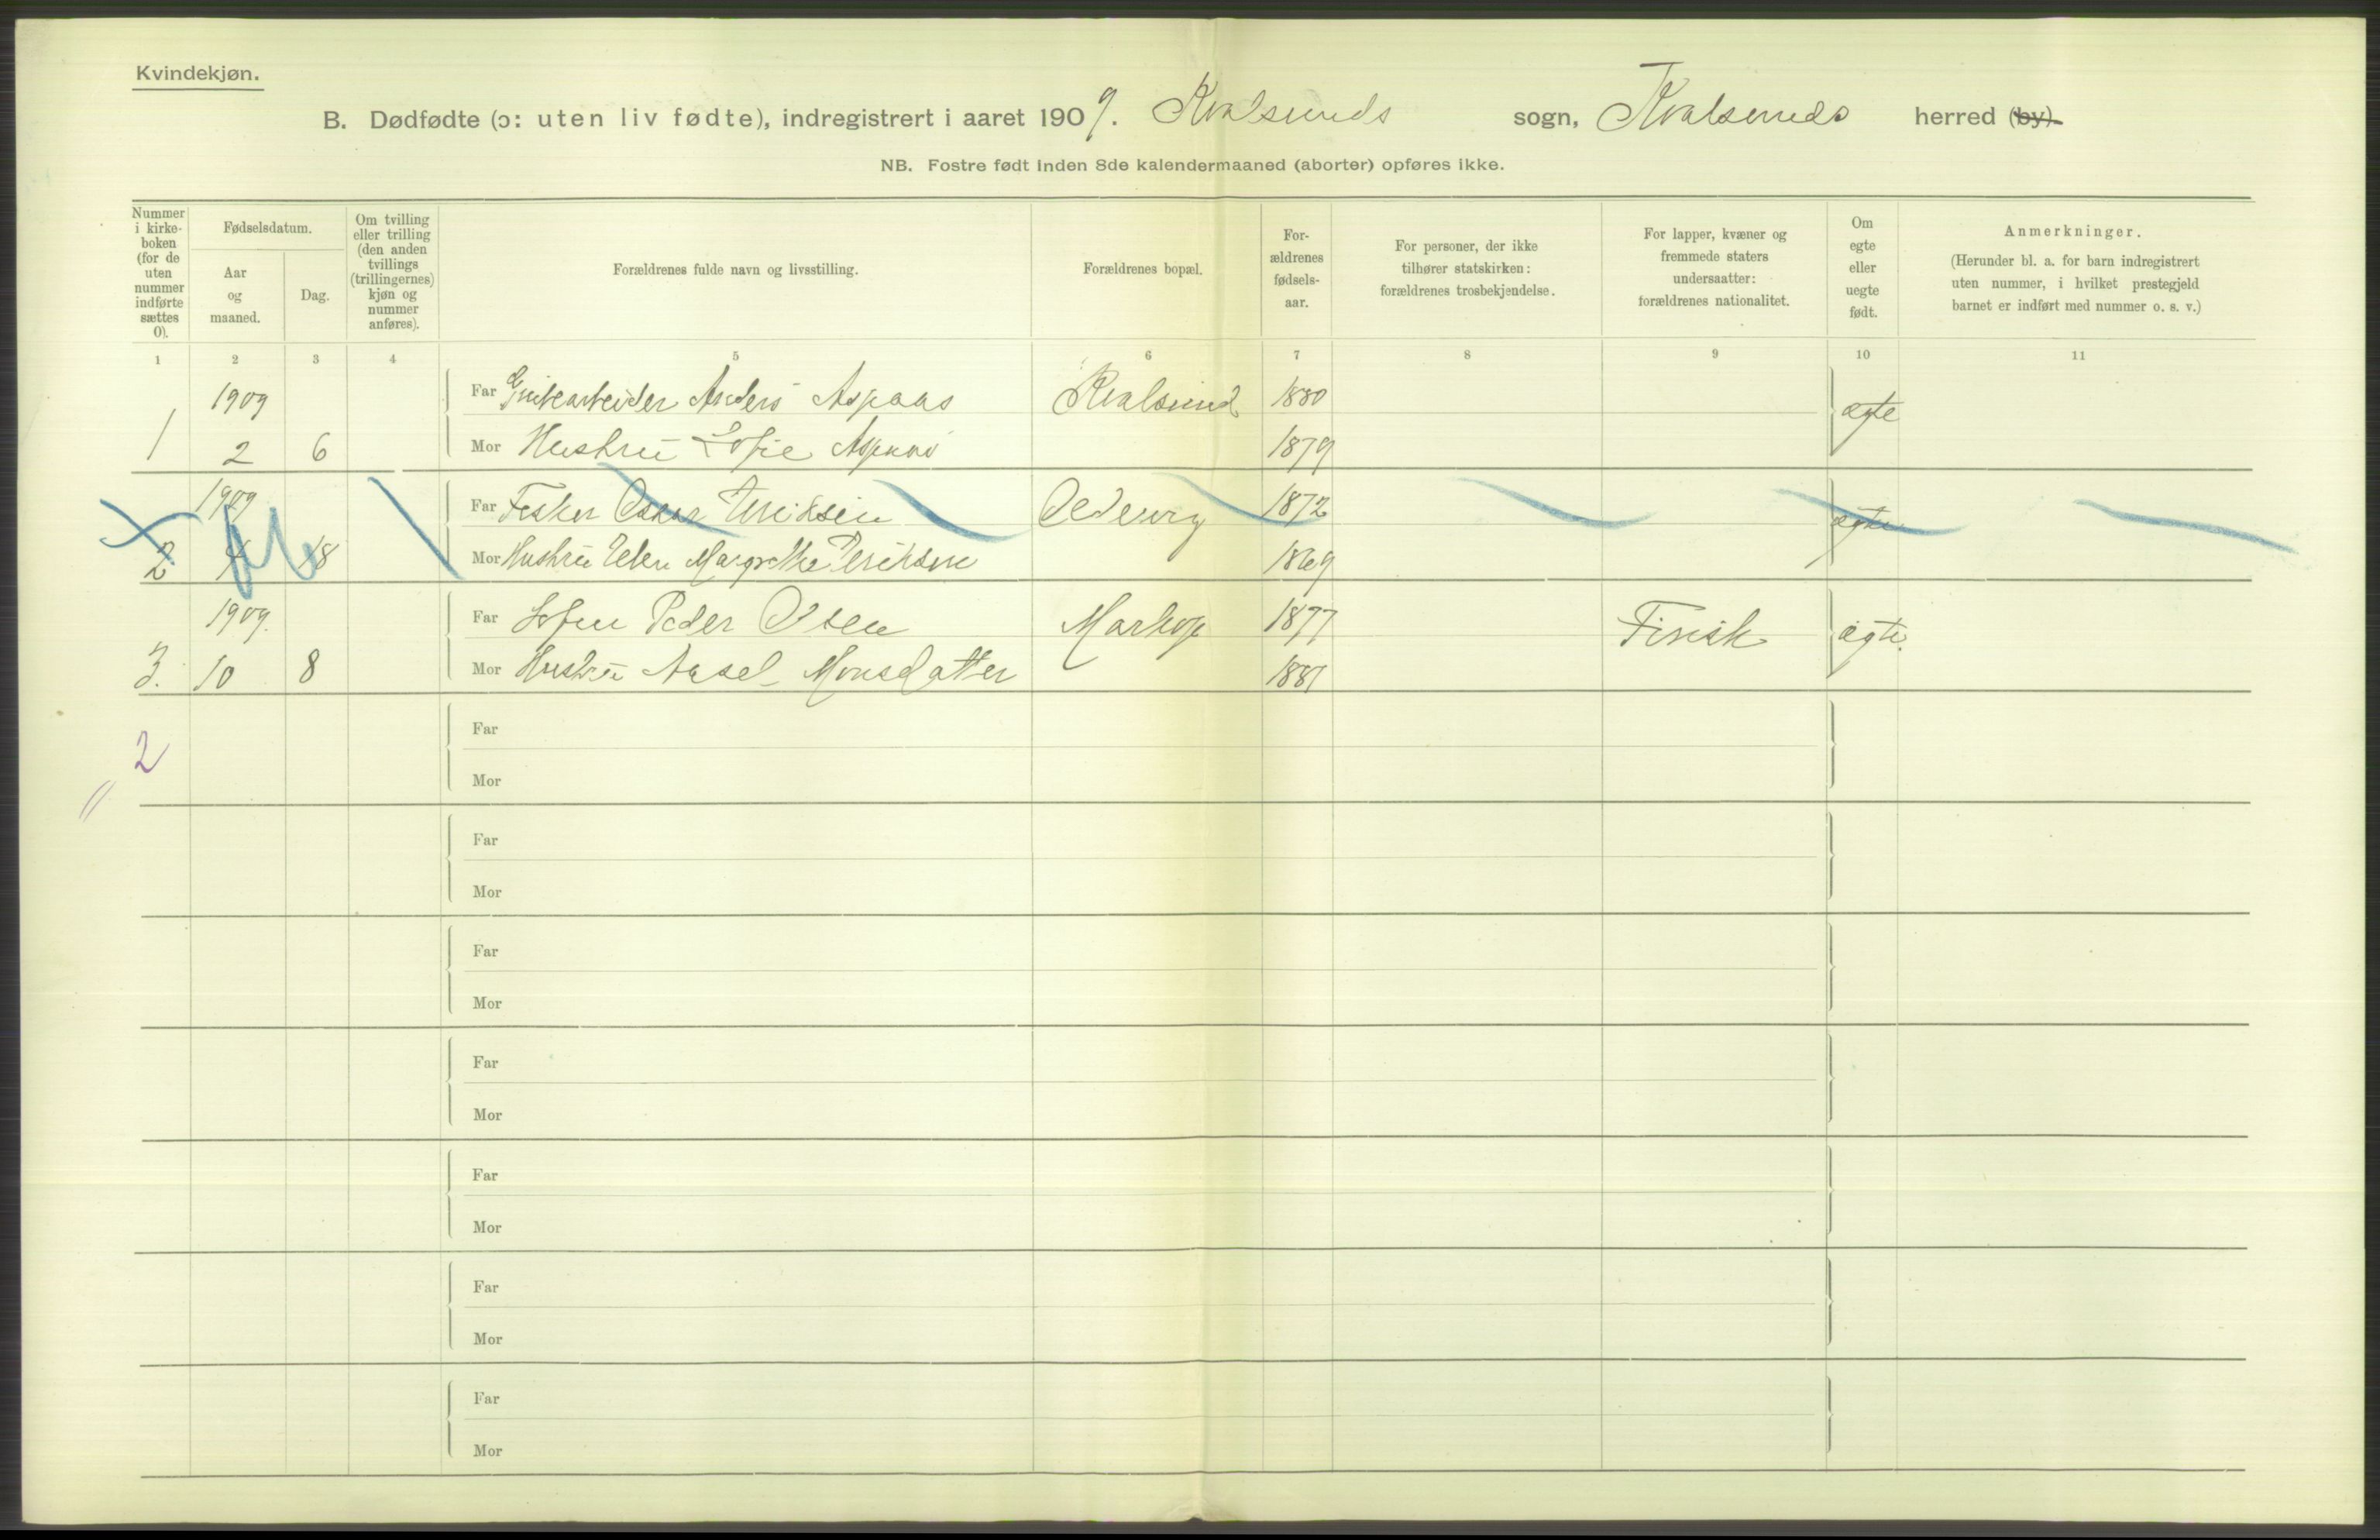 Kvindekjøn.
B. Dødfødte (ɔ: uten liv fødte), indregistrert i aaret 1909. Kvalsunds sogn, Kvalsunds herred (by).
NB. Fostre født inden 8de kalendermaaned (aborter) opføres ikke.
Nummer i kirke-boken (for de uten nummer indførte sættes 0).
Fødselsdatum.
Aar og maaned.
Dag.
Om tvilling eller trilling (den anden tvillings (trillingernes) kjøn og nummer anføres).
Forældrenes fulde navn og livsstilling.
Forældrenes bopæl.
For-ældrenes fødsels-aar.
For personer, der ikke tilhører statskirken: forældrenes trosbekjendelse.
For lapper, kvæner og fremmede staters undersaatter: forældrenes nationalitet.
Om egte eller uegte født.
Anmerkninger.
(Herunder bl. a. for barn indregistrert uten nummer, i hvilket prestegjeld barnet er indført med nummer o. s. v.)
1 2 3 4 5 6 7 8 9 10 11
1909 Far Grubearbeider Anders Aspaas Kvalsund 1880 ægte
1 2 6 Mor Hustru Sofie Aspaas 1879
1909 Far Fisker Oskar Eriksen 1872 ægte
2 4 18 Mor Hustru Elen Margrethe Eriksen 1869
1909. Far Peder Olsen Markop 1877 Finsk ægte.
3. 10 8 Mor Hustru Aasel Monsdatter 1881
2
Far
Mor
Far
Mor
Far
Mor
Far
Mor
Far
Mor
Far
Mor
Far
Mor